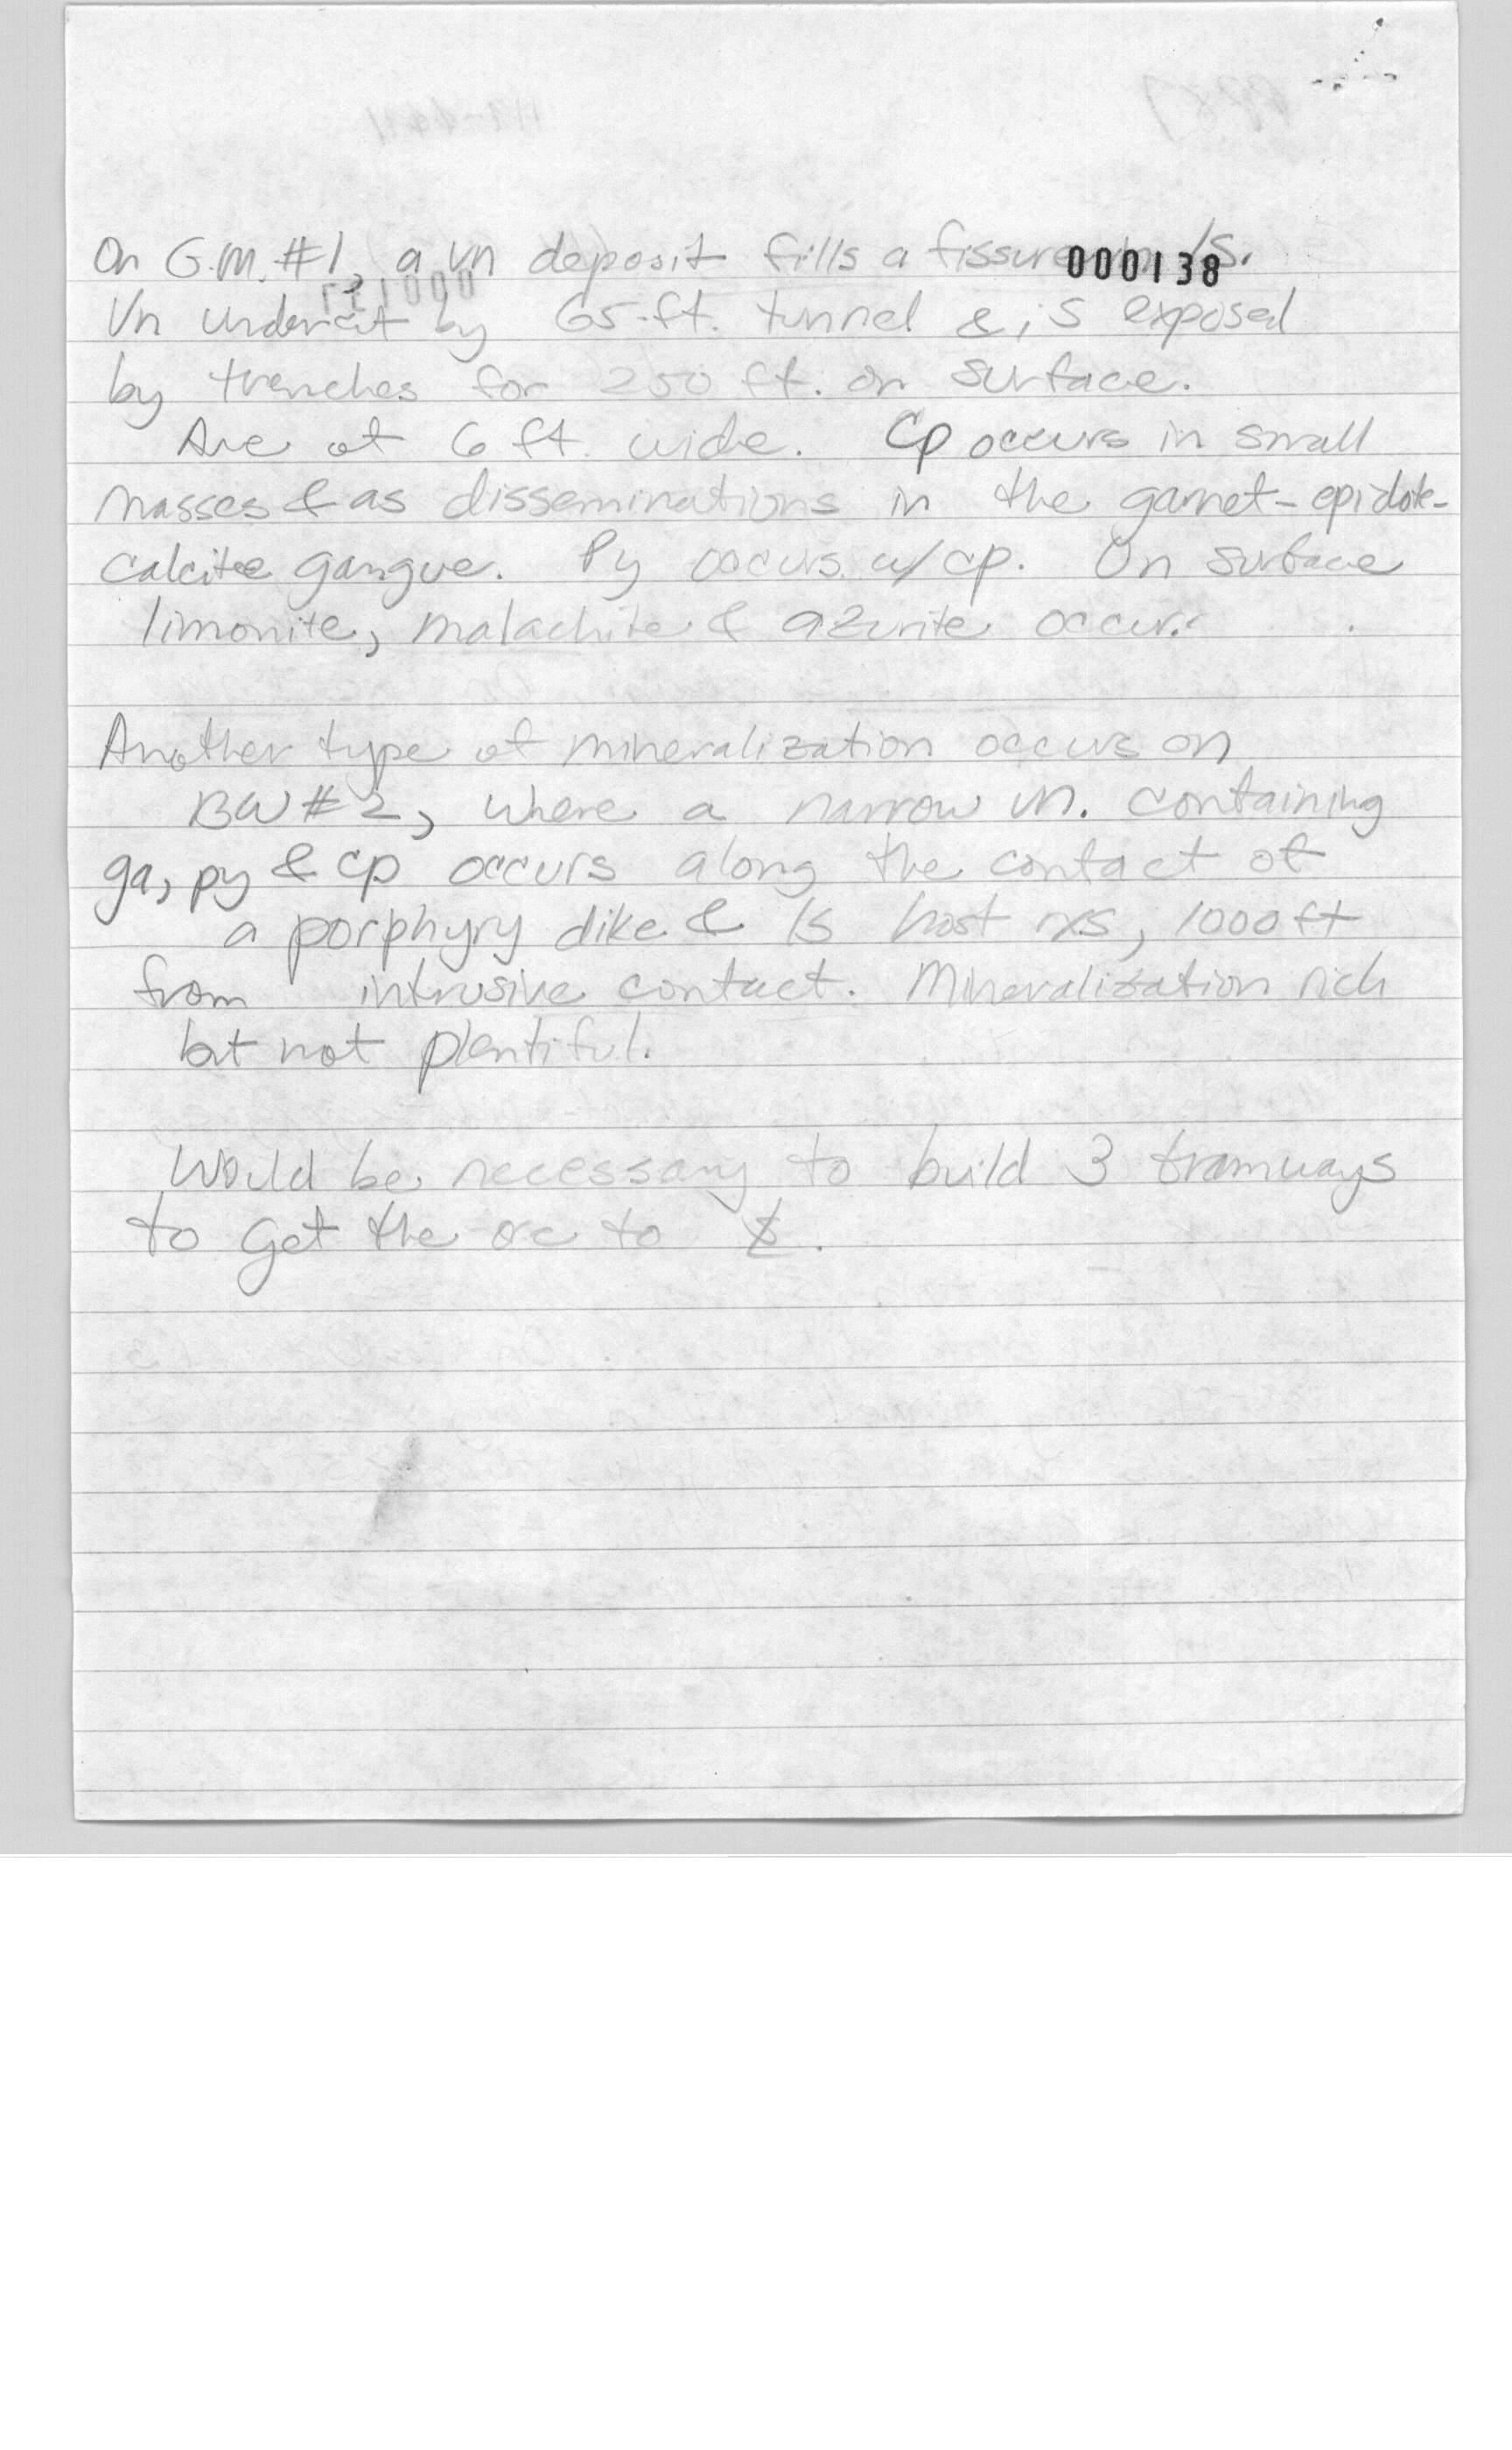 On G.M. #1, a vn deposit fills a fissure in ls.
000138
Vn undercut by 65-ft. tunnel & is exposed
by trenches for 250 ft. on surface.
Ave of 6 ft. wide. Cp occurs in small
masses & as disseminations in the garnet-epidote-
calcite gangue. Py occurs w/ cp. On surface
limonite, malachite & azurite occur.
Another type of mineralization occurs on
BW #2, where a narrow vn. containing
ga, py & cp occurs along the contact of
a porphyry dike & ls host rxs, 1000 ft
from intrusive contact. Mineralization rich
but not plentiful.
Would be necessary to build 3 tramways
to get the ore to